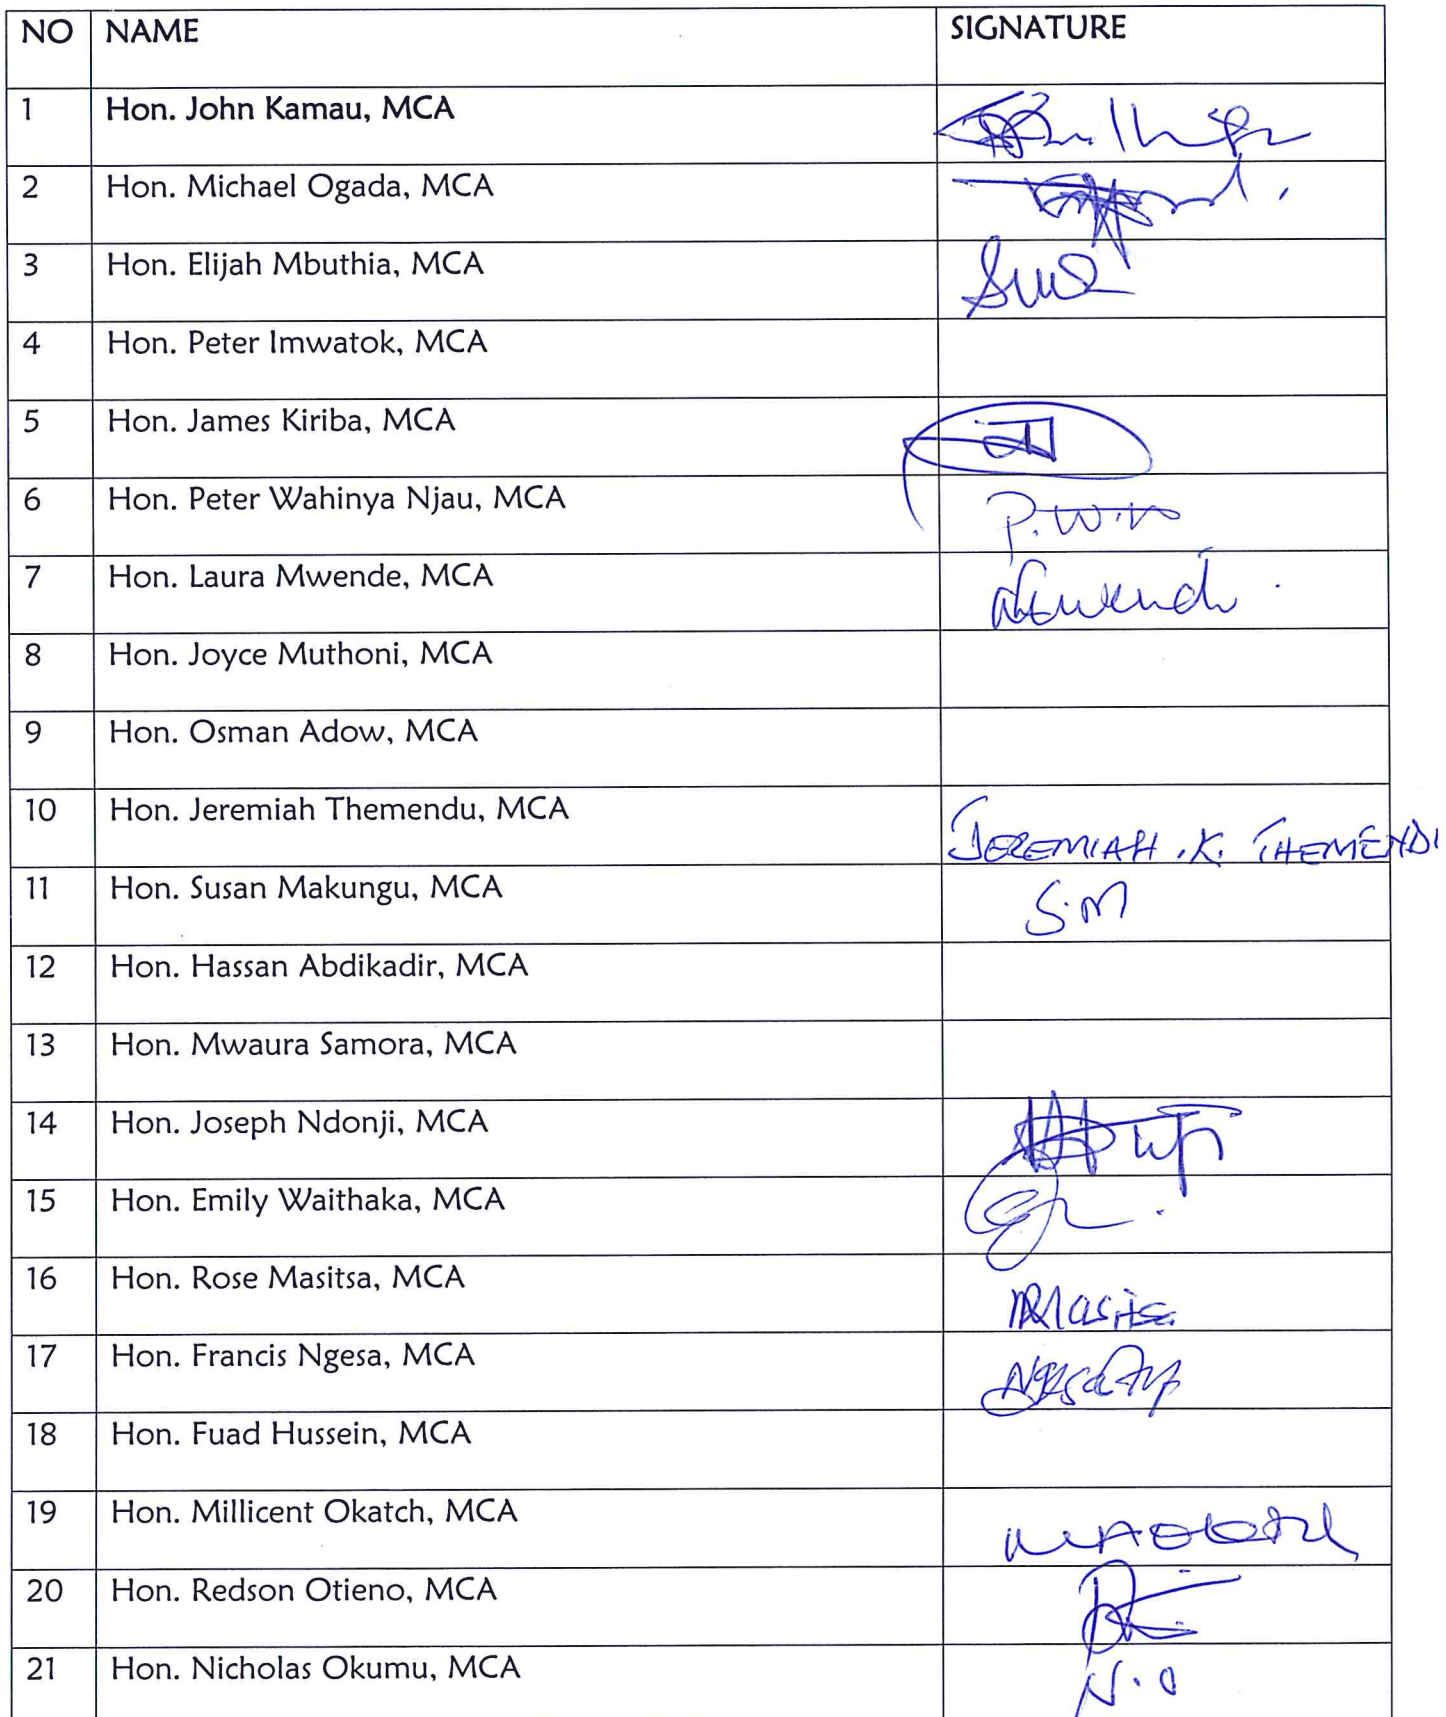 NO NAME SIGNATURE
1 Hon. John Kamau, MCA
2 Hon. Michael Ogada, MCA
3 Hon. Elijah Mbuthia, MCA
4 Hon. Peter Imwatok, MCA
5 Hon. James Kiriba, MCA
6 Hon. Peter Wahinya Njau, MCA P.W.N
7 Hon. Laura Mwende, MCA
8 Hon. Joyce Muthoni, MCA
9 Hon. Osman Adow, MCA
10 Hon. Jeremiah Themendu, MCA JEREMIAH .K. THEMENDU
11 Hon. Susan Makungu, MCA S.M
12 Hon. Hassan Abdikadir, MCA
13 Hon. Mwaura Samora, MCA
14 Hon. Joseph Ndonji, MCA
15 Hon. Emily Waithaka, MCA
16 Hon. Rose Masitsa, MCA
17 Hon. Francis Ngesa, MCA
18 Hon. Fuad Hussein, MCA
19 Hon. Millicent Okatch, MCA
20 Hon. Redson Otieno, MCA
21 Hon. Nicholas Okumu, MCA N.O